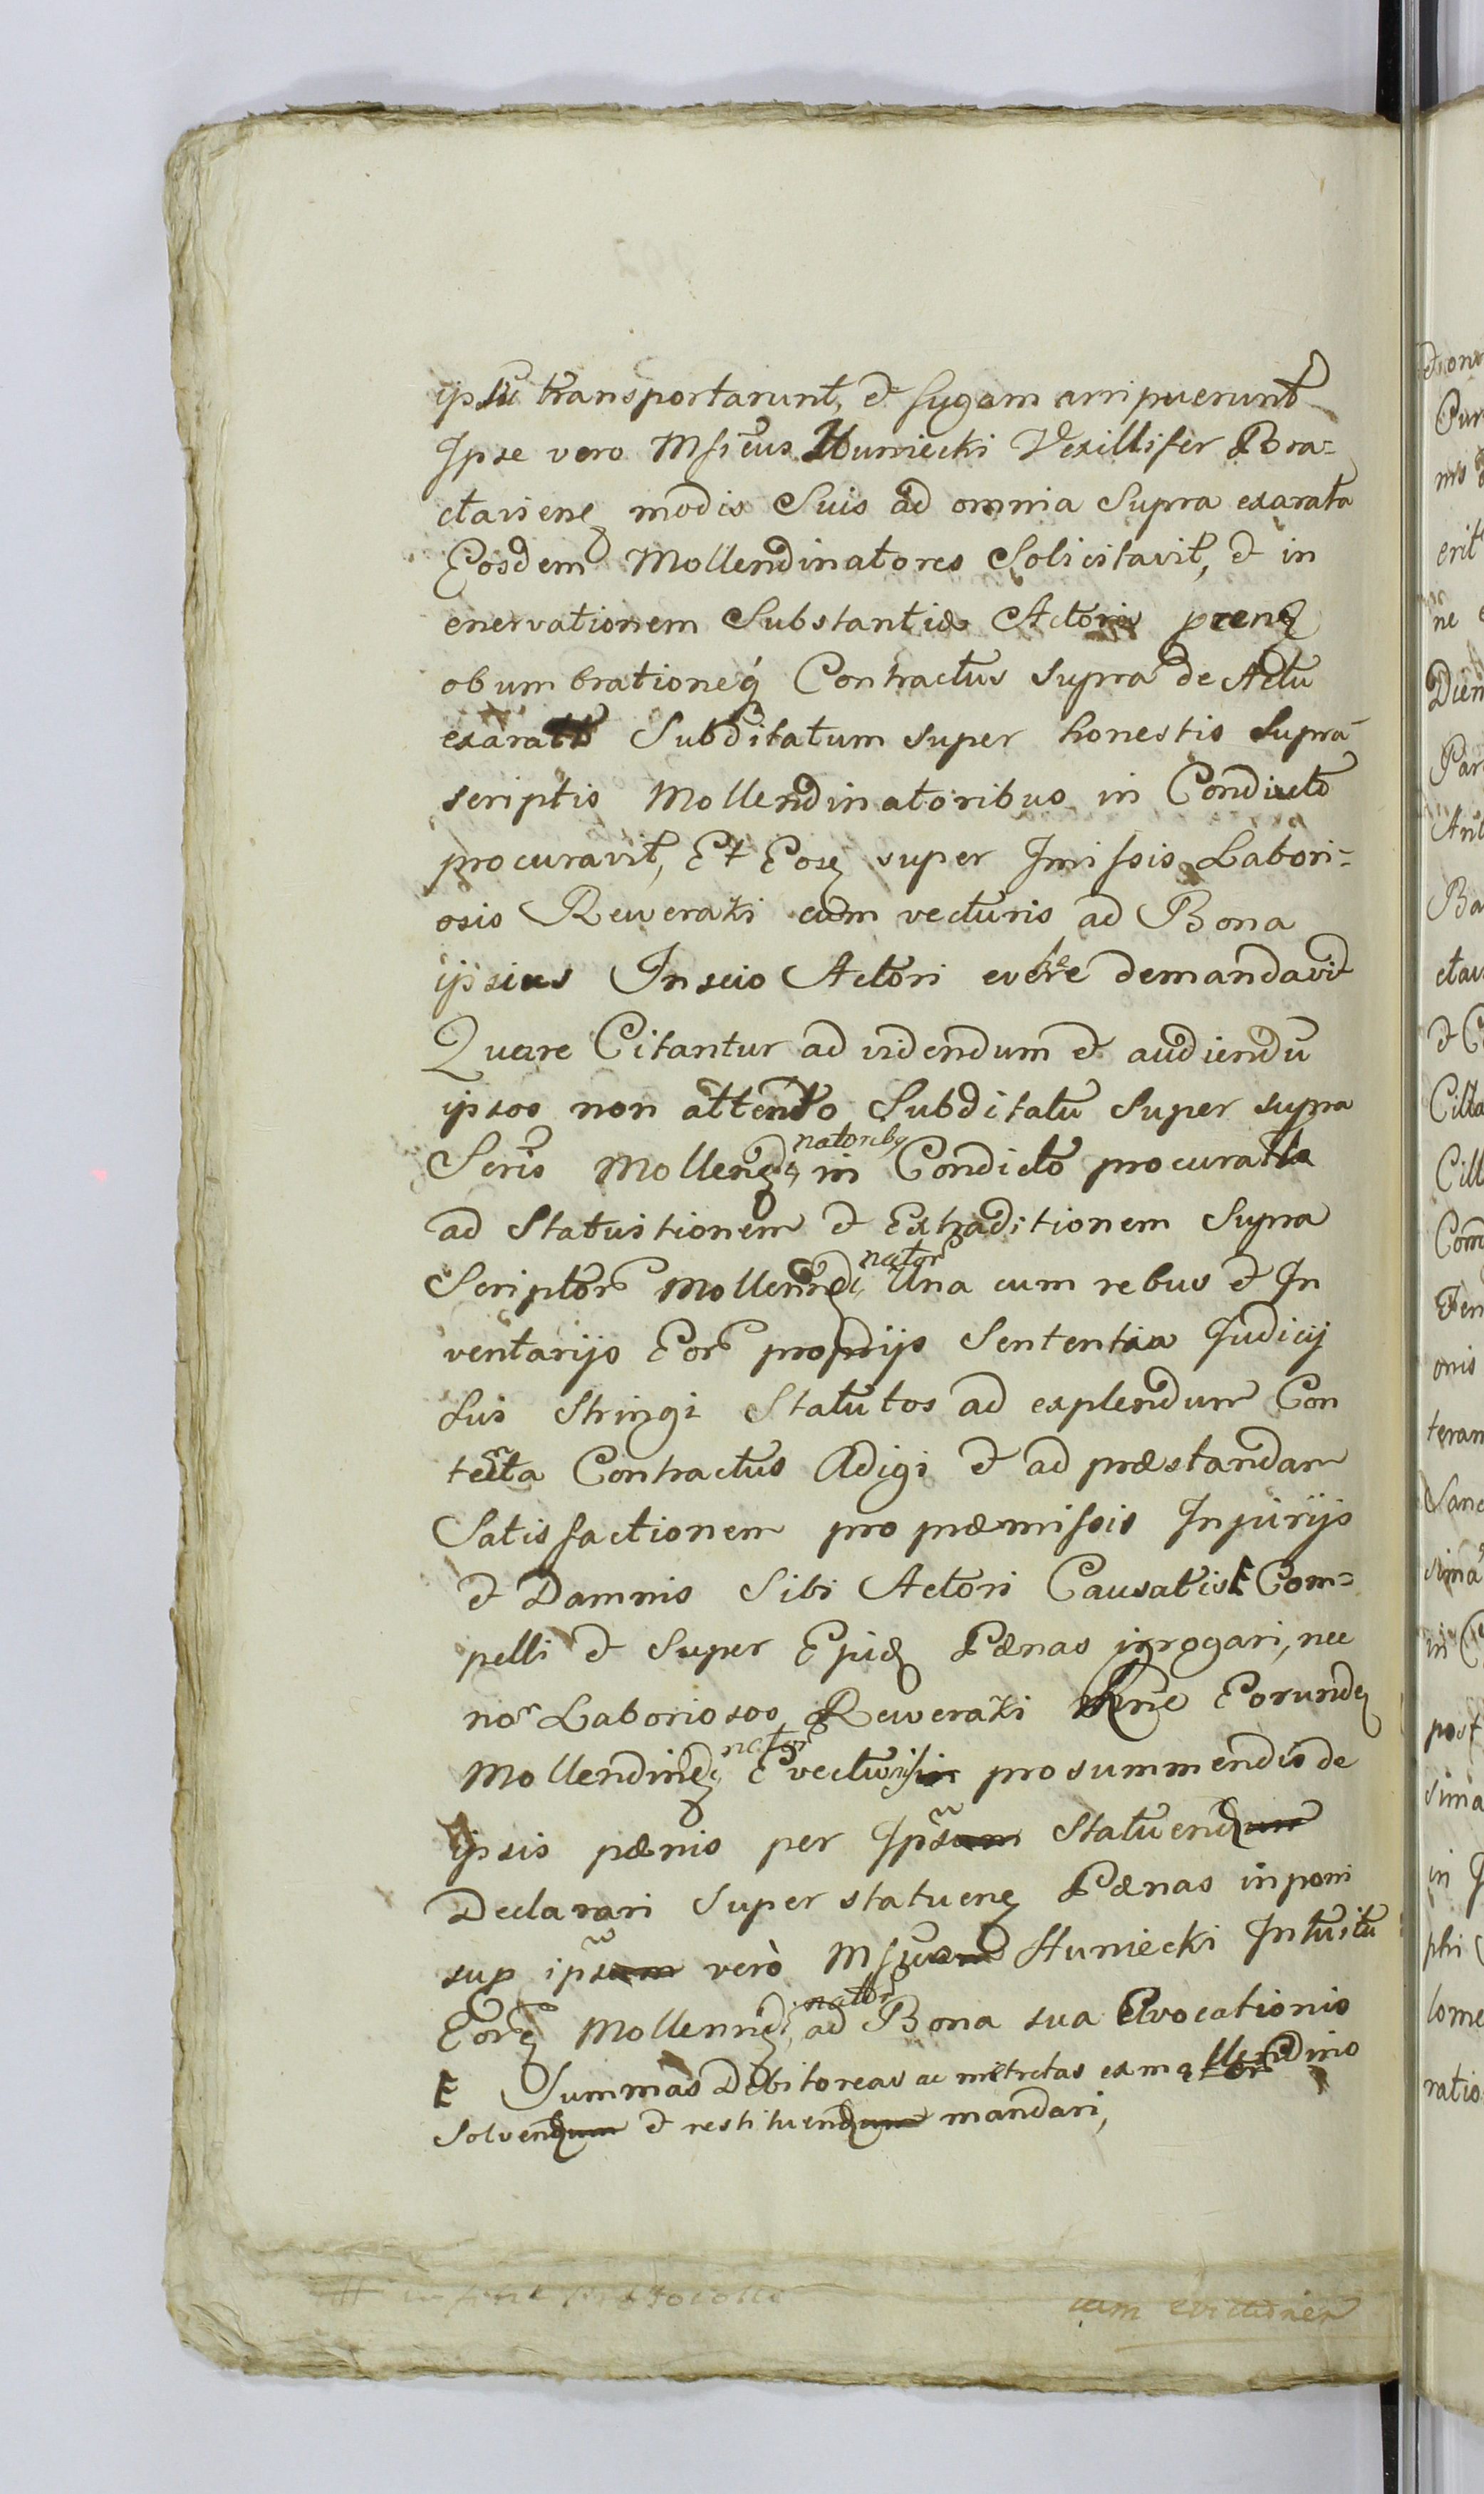 ipsu transportarunt, et fugam arripuerunt
Ipse vero Msicus Huniecki Vexillifer Bra=
clavien modis Suis ad omnia Supra exarata
Eosdem Mollendinatores Solicitavit, et in
enervationem Substantiæ Actoris prens
obumbrationeq́ Contractus supra de Actu
exaratt Subditatum super honestis supra
scriptis Mollendinatoribus in Condicto
procuravit, Et Eosq super Imissis Labori=
osis Reweraki cum vecturis ad Bona
ipsius Inscio Actori evehe demandavit
Quare Citantur ad videndum et audiendu
ipsos non attento Subditatu Super supra
Scris Mollend natoribq in Condicto procurato
ad Statuitionem et Extraditionem Supra
Scriptor Mollennd nator Una cum rebus et In
ventarijs Eor proprijs Sententia Judicij
Sui Stringi Statutos ad explendum Con
tenta Contractus Adigi et ad præstandam
Satisfactionem pro præmissis Injurijs
et Damnis Sibi Actori Causatis Com=
pelli et Super Epid Pænas irrogari, nec
non Laboriosos Reweraki Eorunde
Mollendind nator Evectur pro summendis de
Ipsis pænis per Ipsum Statuendum
Declarari Super statuend Pænas inponi
sup ipsum verò Huniecki Intuitu
Eor Mollennd nator ad Bona sua Evocationis
Summas Debitoreas ac metretas ex mollendino
solvendum et restituendum mandari,
in fine prothocolli
cum evictionen